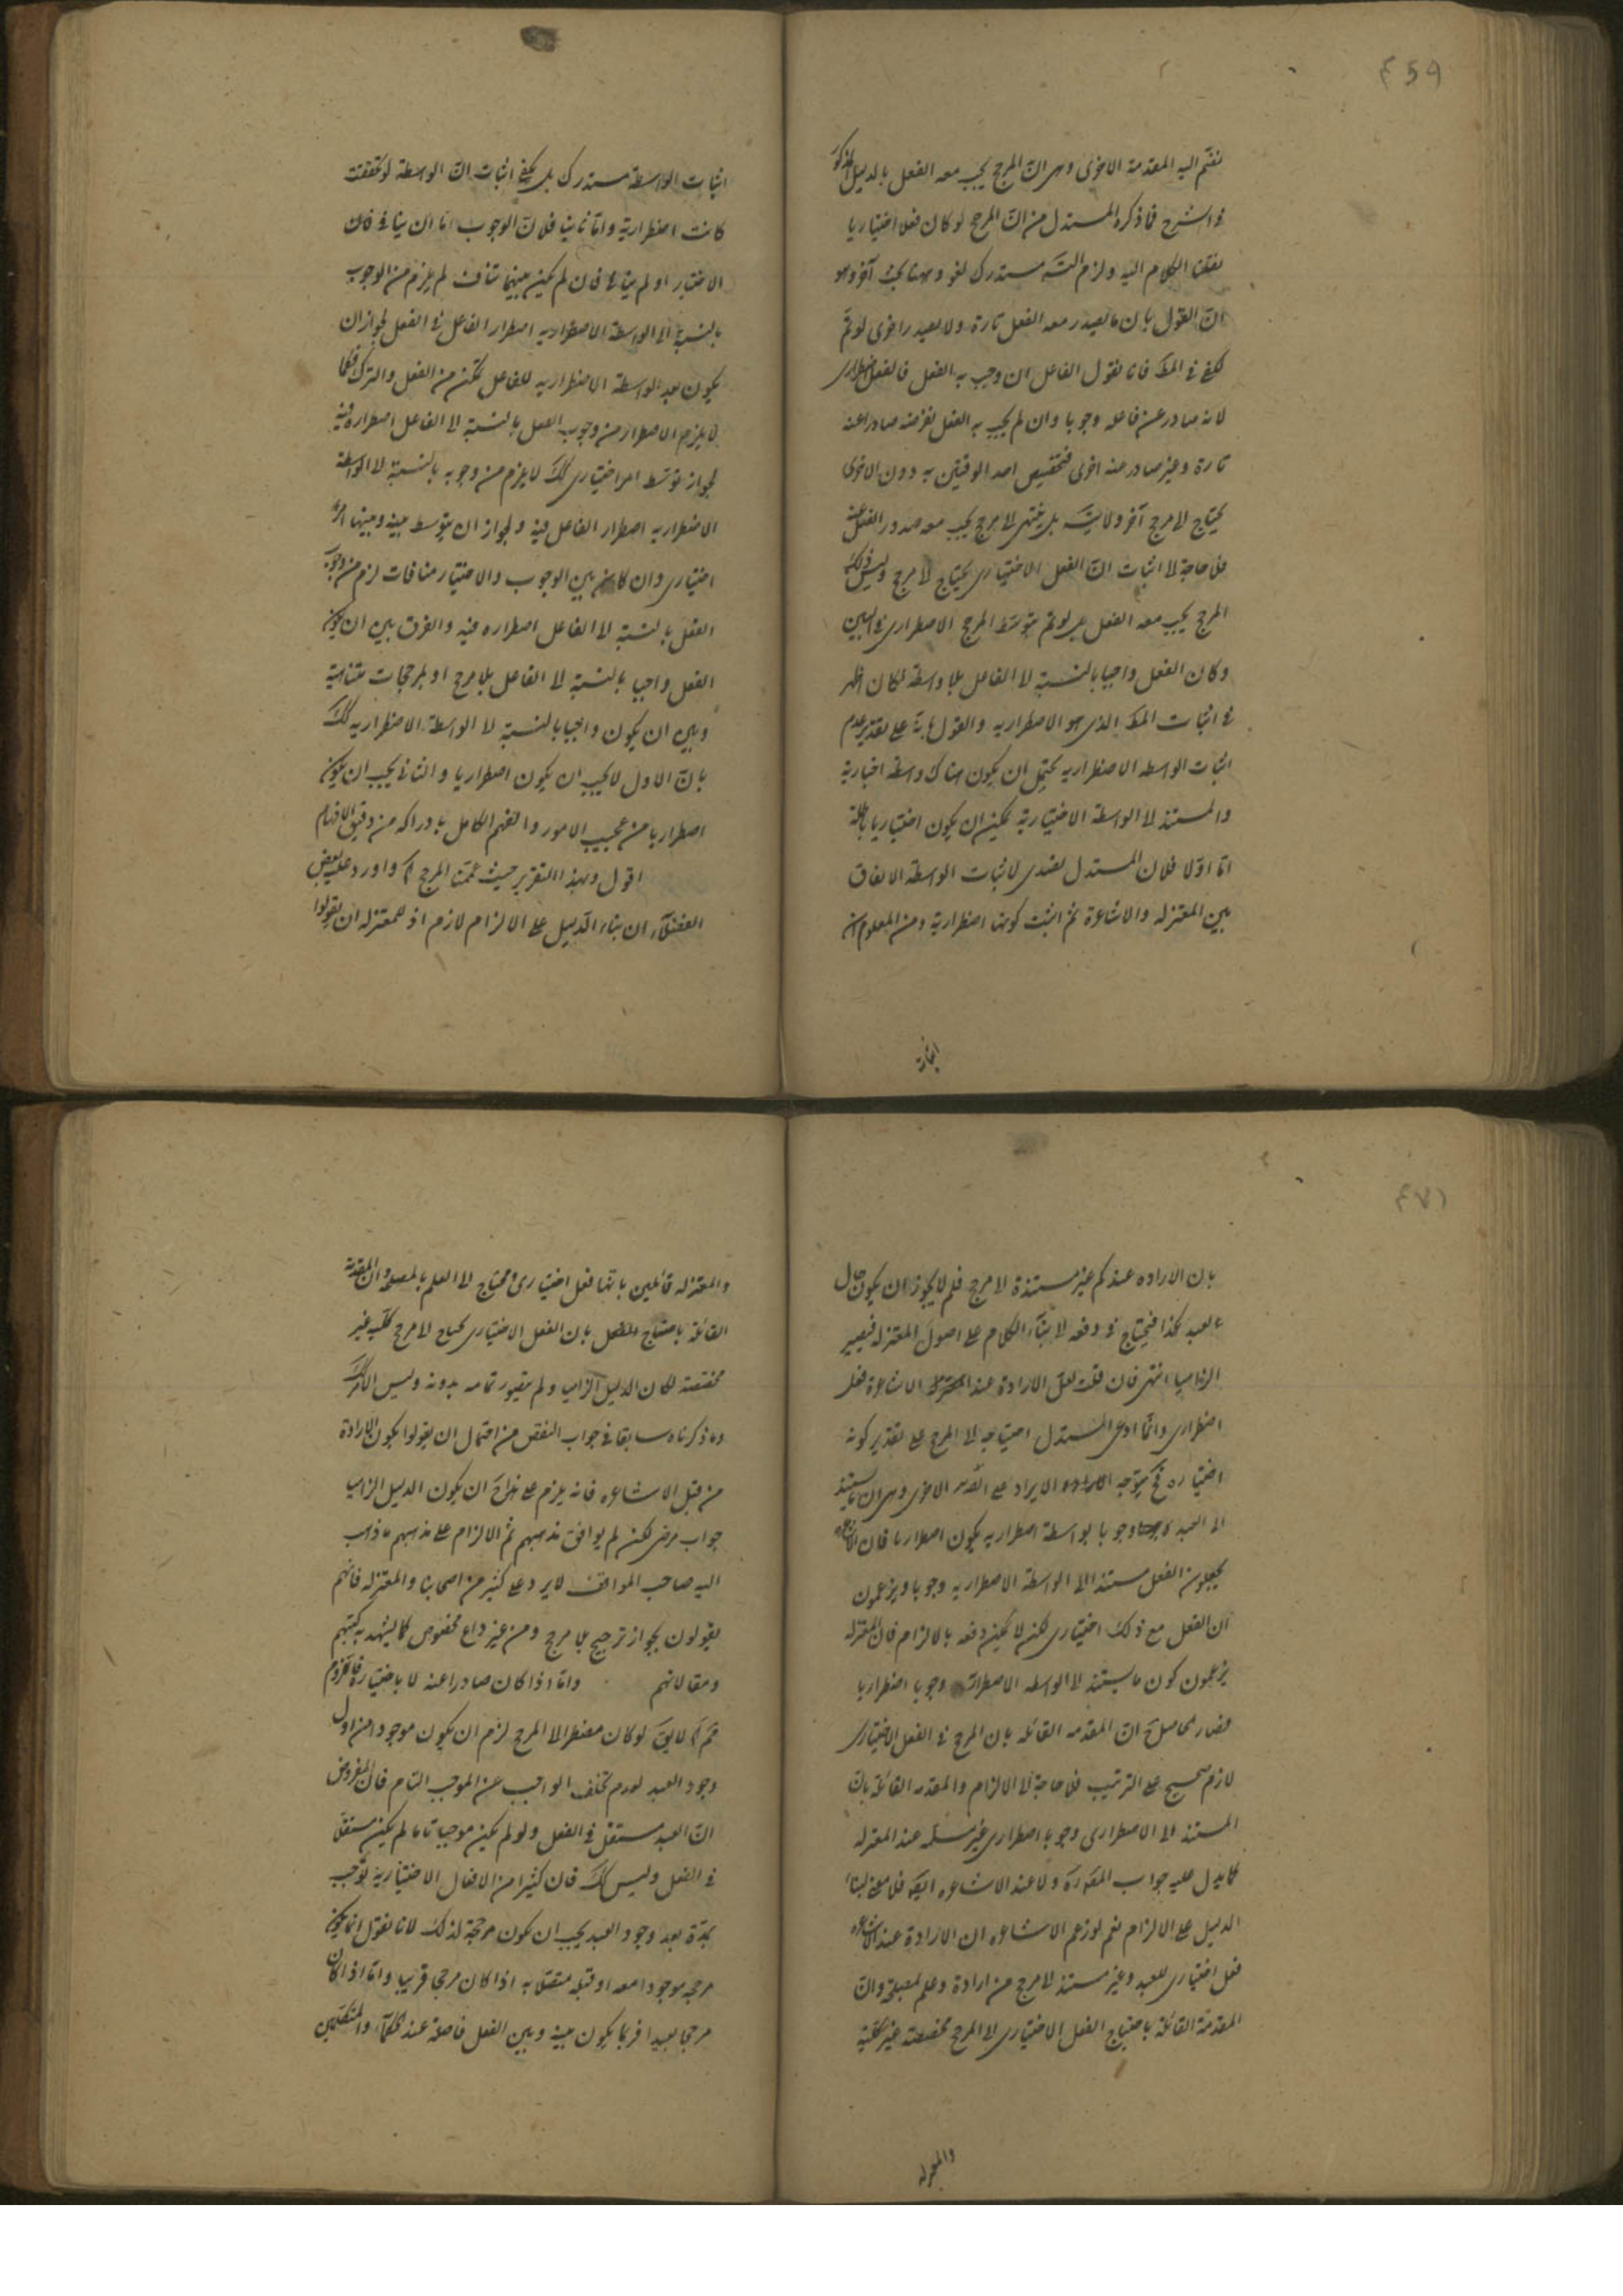 ٤٥٩
نضم اليه المقدمة الاخرى وهى انّ المرجح يجب معه الفعل بالدليل المذكور
فى الشرح فما ذكره المستدل من انّ المرجح لو كان فعلا اختياريا
نقلنا الكلام اليه ولزم التسّه مستدرك لغو وههنا بحث آخر وهو
انّ القول بان ما يصدر معه الفعل تارة ولا يصدر اخرى لو تمّ
لكفى فى المط فانا نقول الفاعل ان وجب به الفعل فالفعل اضطرارى
لانه صادر عن فاعله وجوبا وان لم يجب به الفعل نفرضه صادرا عنه
تارة وغير صادر منه اخرى فتخصيص احد الوقتين به دون الاخرى
يحتاج لا مرجح آخر ولا يتسه بل ينتهى لا مرجح يجب معه صدور الفعل عنه
فلا حاجة لا اثبات انّ الفعل الاختيارى يحتاج لا مرجح وليس ذلك
المرجح يجب معه الفعل بل لو تم بتوسّط المرجح الاضطرارى فى البين
وكان الفعل واجبا بالنسبة لا الفاعل بلا واسطة لكان اظهر
فى اثبات المط الذى هو الاضطراريه والقول بانّه على تقدير عدم
اثبات الواسطه الاضطراريه يحتمل ان يكون هناك واسطة اختيارية
والمستند لا الواسطة الاختيارية يمكن ان يكون اختياريا باطلة
امّا اوّلا فلان المستدل تصدى لاثبات الواسطة الاتفاق
بين المعتزله والاشاعرة ثم اثبت كونها اضطرارية ومن المعلوم ان
اثبات
اثبات الواسطة مستدرك بل يكفى اثبات انّ الواسطة لو تحققت
كانت اضطرارية وامّا ثانيا فلانّ الوجوب امّا ان ينافى فان
الاختيار او لم ينافى فان لم يكن بينهما تناف لم يلزم من الوجوب
بالنسبة الى الواسطة الاضطراريه اضطرار الفاعل فى الفعل لجواز ان
يكون بعد الواسطة الاضطراريه للفاعل تمكن من الفعل والترك فكما
لا يلزم الاضطرار من وجوب الفعل بالنسبة الى الفاعل اضطراره فيه
لجواز توسّط امر اختيارى كك لا يلزم من وجوبه بالنسبة لا الواسطة
الاضطراريه اضطرار الفاعل فيه ولجواز ان يتوسط بينه وبينها امر
اختيارى وان كان بين الوجوب والاختيار منافات لزم من وجوب
الفعل بالنسبة لا الفاعل اضطراره فيه والفرق بين ان يكون
الفعل واجبا بالنسبة لا الفاعل بلا مرجح او بمرجحات متناهية
وبين ان يكون واجبا بالنسبة لا الواسطة الاضطراريه كك
بانّ الاول لا يجب ان يكون اضطراريا والثانى يجب ان يكون
اضطراريا من عجيب الامور والفهم الكامل بادراكه من دقيق الافهام
اقول وبهذا التقرير حيث عمّمنا المرجح اه واورد عليه بعض
الفضلآء ان بناء الدّليل على الالزام لازم اذ للمعتزله ان يقولوا
٤٧١
بان الاراده عندكم غير مستندة الا مرجح فلم لا يجوز ان يكون حال
العبد كذا فيحتاج فى دفعه لا بنآء الكلام على اصول المعتزله فيصير
الزاميا انتهى فان قلت لعلّ الارادة عند الاشاعرة فعل
اضطرارى وانّما ادعى المستدل احتياجه الى المرجح على تقدير كونه
اختياره فح يتوجه الايراد على الاخرى وهى ان ما يستند
الى العبد وجوبا بواسطة اضطراريه يكون اضطراريا فان الاشاعرة
يجعلون الفعل مستندا الى الواسطة الاضطراريه وجوبا ويزعمون
ان الفعل مع ذلك اختيارى لكن لا يمكن دفعه بالالزام فان المعتزله
يزعمون كون ما يستند لا الواسطه الاضطرارية وجوبا اضطراريا
فصار الحاصل ح انّ المقدمه القائله بان المرجح فى الفعل الاختيارى
لازم صحيح على الترتيب فلا حاجة لا الالزام والمقدمه القائلة بانّ
المستند الى الاضطرارى وجوبا اضطرارى غير مسلّمه عند المعتزله
كما يدل عليه جواب المقرره ولا عند الاشاعره ايضه فلا معنى لبناء
الدليل على الالزام نعم لو زعم الاشاعره ان الارادة عند الاشاعره
فعل اختيارى للعبد وغير مستند لا مرجح من ارادة وعلم لمصلحة وانّ
المقدمة القائلة باحتياج الفعل الاختيارى لا المرجح مخصصة غير كلّية
والمعتزله
والمعتزله قائلين بانّها فعل اختيارى محتاج الى العلم بالمصلحة وان المقدمة
القائلة باحتياج بان الفعل الاختيارى يحتاج لا مرجح كلّيه غير
مخصصة لكان الدليل الزاميا ولم يتصور تمامه بدونه وليس الامر كك
وما ذكرناه سابقا فى جواب النقض من احتمال ان يقولوا بكون الارادة
من قبل الاشاعره فانه يلزم على هذا ح ان يكون الدليل الزاميا
جواب مرضى لكن لم يوافق مذهبهم ثم الالزام على مذهبهم ما ذهب
اليه صاحب المواقف لا يرد على كثير من اصحابنا والمعتزله فانهم
يقولون بجواز ترجيح بلا مرجح ومن غير داع مخصوص كما يشهد به كتبهم
ومقالاتهم وامّا اذا كان صادرا عنه لا باختياره فاللزوم
ثمّ اه لا يق لو كان مضطرا لا المرجح لزم ان يكون موجودا من اول
وجود العبد لعدم تخلف الواجب عن الموجب التام فان المفروض
انّ العبد مستقل فى الفعل ولو لم يكن موجبا تاما لم يكن مستقلّا
فى الفعل وليس كك فان كثيرا من الافعال الاختيارية توجب
بمدّة بعد وجود العبد يجب ان يكون مرجحة لذلك لانا نقول انما يكون
مرجحه موجودا معه او قبله متصلا به اذا كان مرجحا قريبا وامّا اذا كان
مرجحا بعيدا فربما يكون بينه وبين الفعل فاصلة عند الحكمآء والمتكلّمين